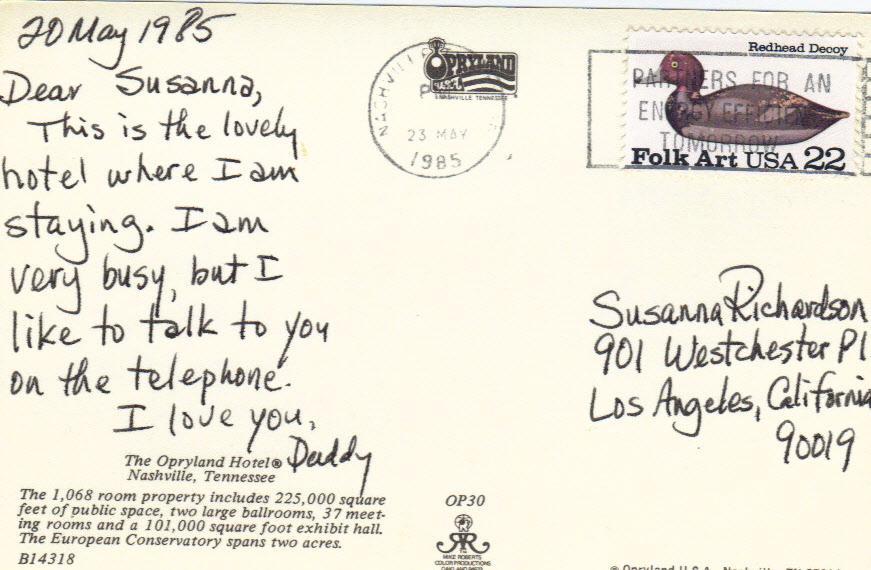 20 May 1985
Dear Susanna,
This is the lovely
hotel where I am
staying. I am
very busy, but I
like to talk to you
on the telephone.
I love you,
Daddy
The Opryland Hotel®
Nashville, Tennessee
The 1,068 room property includes 225,000 square
feet of public space, two large ballrooms, 37 meet-
ing rooms and a 101,000 square foot exhibit hall.
The European Conservatory spans two acres.
B14318
OPRYLAND
NASHVILLE TENNESSEE
23 MAY
1985
Redhead Decoy
PARTNERS FOR AN
ENERGY EFFICIENT
TOMORROW
Folk Art USA 22
Susanna Richardson
901 Westchester Pl
Los Angeles, California
90019
OP30
MIKE ROBERTS
COLOR PRODUCTIONS
© Opryland U.S.A., Nashville, TN